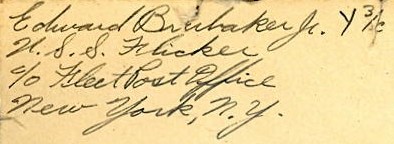 Edward Brubaker Jr. Y 3/c
U.S.S. Flicker
c/o Fleet Post Office
New York, N.Y.